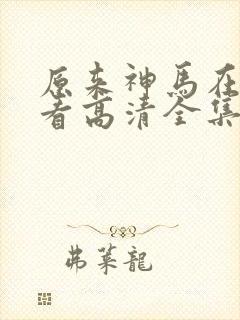 原来神馬在
看高清全集
弗莱龍